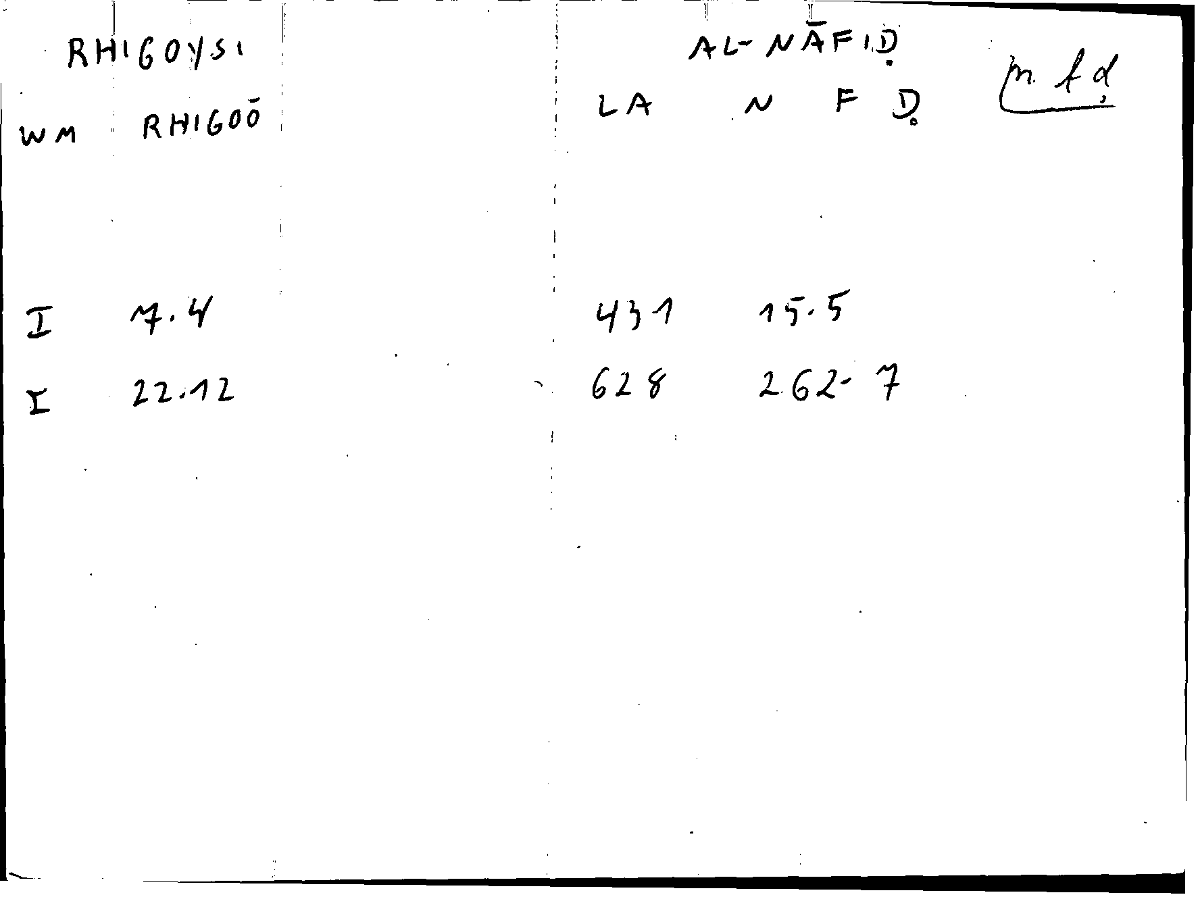 RHIGOYSI AL-NĀFIḌ
WM RHIGOŌ LA N F Ḍ n f ḍ
I 7.4 431 15.5
I 22.12 628 262-7